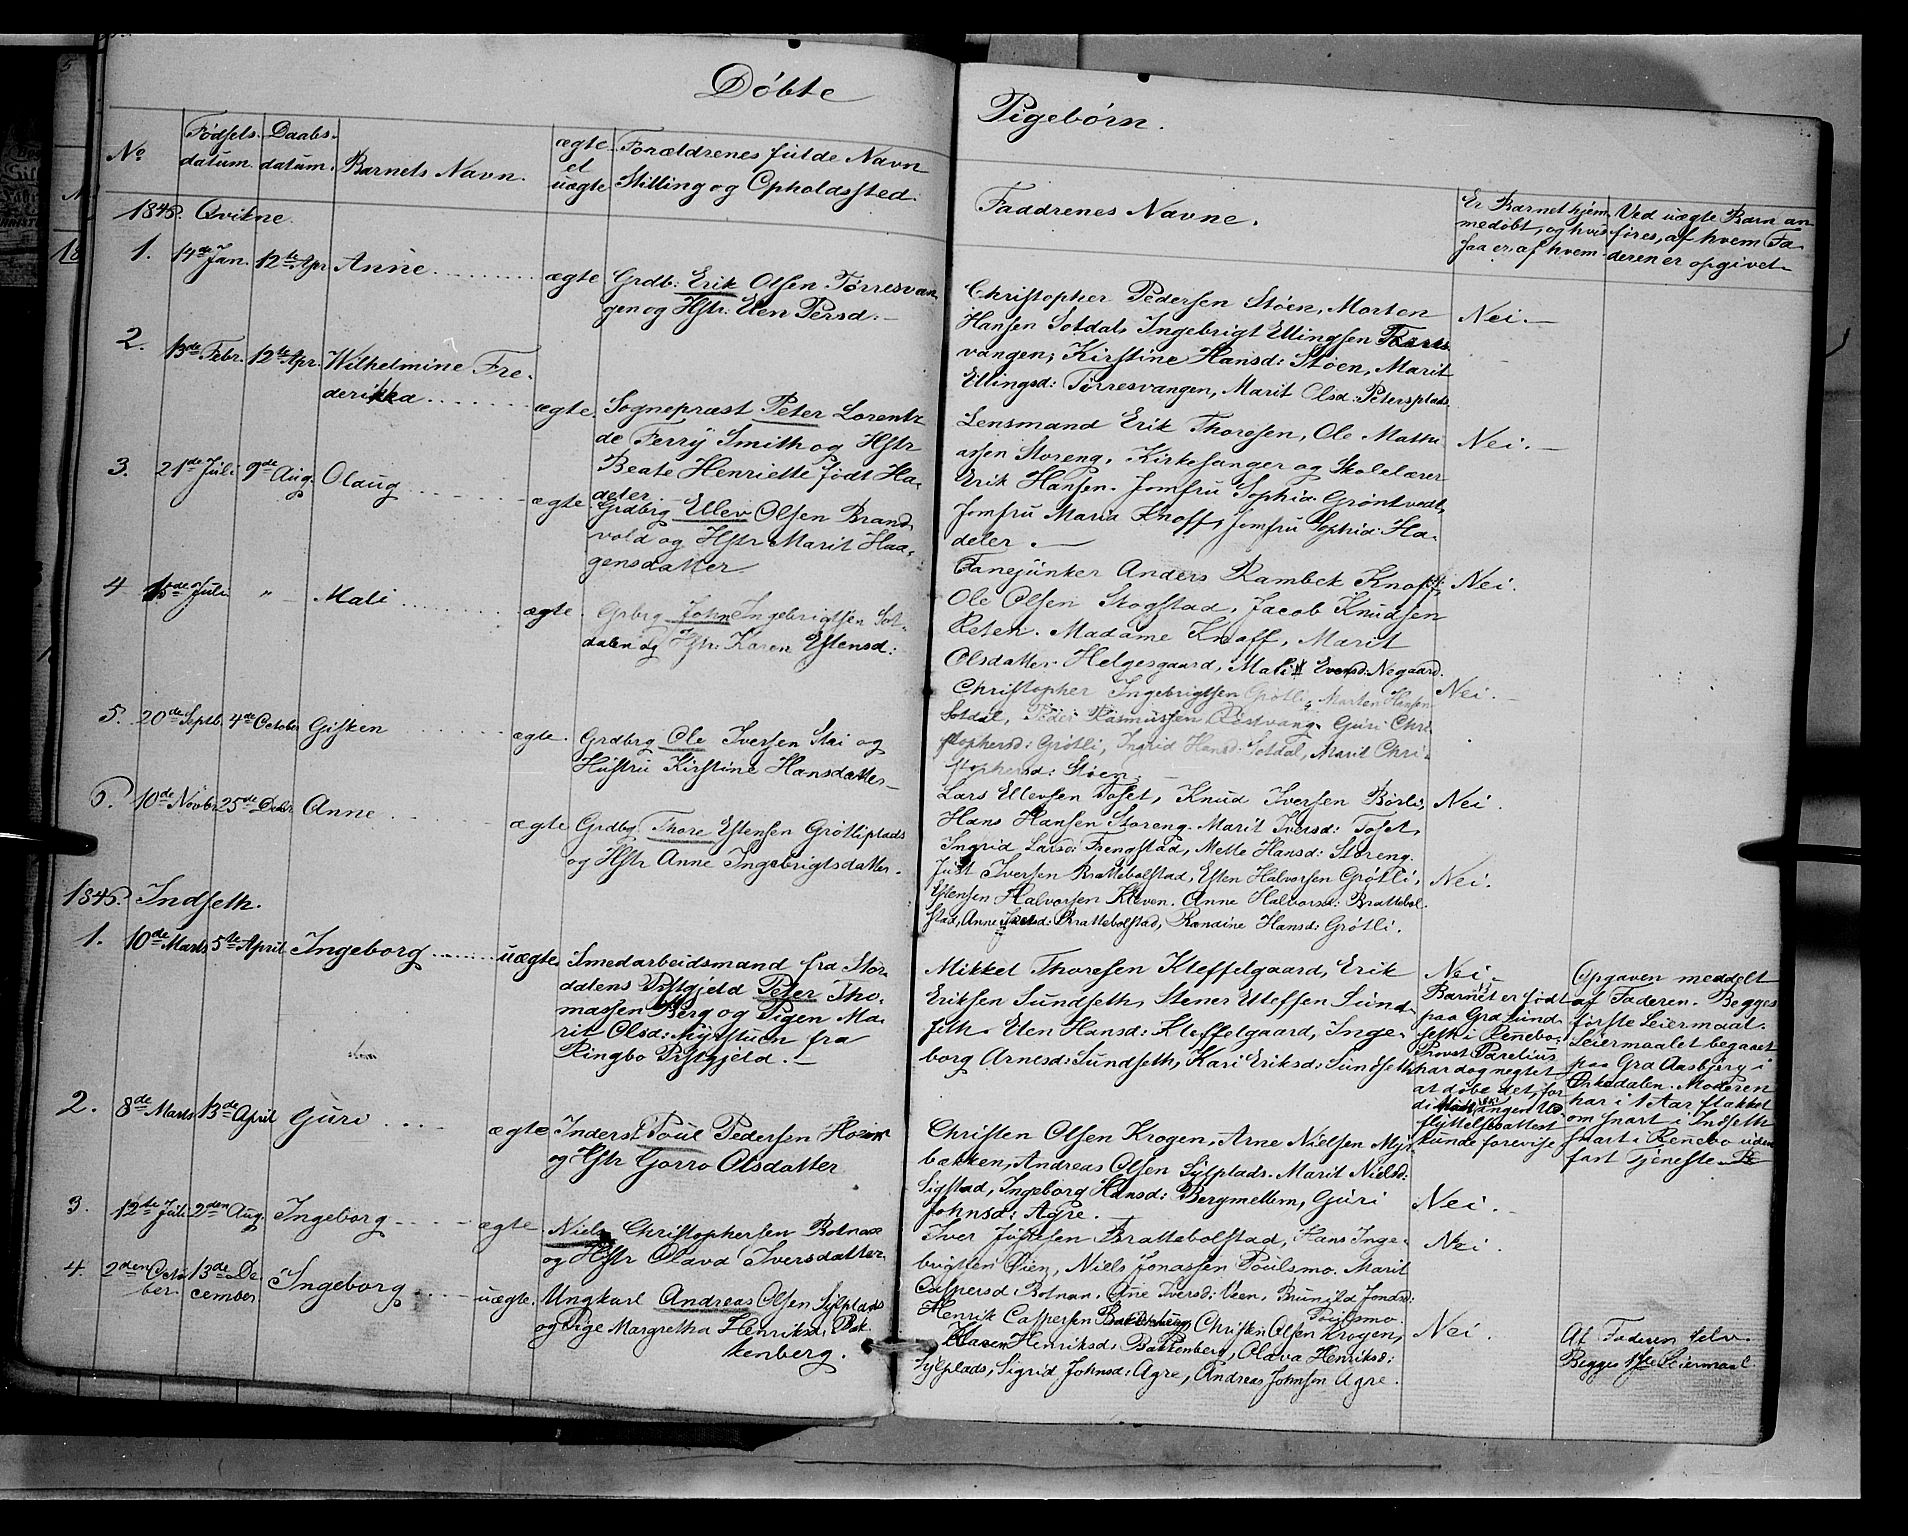 Døbte
Pigebørn.
No
Fødsels-
datum.
Daabs-
datum.
Barnets Navn.
ægte
el
uægte
Forældrenes fulde Navn
Stilling og Opholdssted.
Faddrenes Navne.
Er Barnet hjem-
medøbt, og hvis
saa er af hvem
Ved uægte Barn an-
føres, af hvem Fa-
deren er opgivet
1845. Qvikne.
1. 14de Jan. 12te Apr Anne ægte Grdb: Erik Olsen Tørresvan-
gen og Hstr: Elen Persd:
Christopher Pedersen Støen, Morten
Hansen Sotdal, Ingebrigt Ellingsen
vangen, Kirstine Hansd: Støen, Marit
Ellingsd: Tørresvangen, Marit Olsd: Petersplads.
Nei.
2. 13de Febr. 12te Apr. Wilhelmine Fre-
derikka ægte Sognepræst Peter Lorentz
de Ferry Smith og Hstr
Beate Henriette født Ha-
deler.
Lensmand Erik Thoresen, Ole Mathi-
assen Storeng, Kirkesanger og Skolelærer
Erik Hansen. Jomfru Sophia Grøntvedt,
Jomfru Maria Knoff, Jomfru Sophia Ha-
deler.
Nei.
3. 21de Juli 9de Aug. Olaug ægte Grdbrg Ellev Olsen Brand-
vold og Hstr Marit Haa-
gensdatter
Fanejunker Anders Rambek Knoff,
Ole Olsen Stogstad, Jacob Knudsen
Reten. Madame Knoff, Marit
Olsdatter Helgesgaard, Mali Eversd: Negaard.
Nei.
4 15de Juli " Mali ægte. Grbrg John Ingebrigtsen Sot-
dalen og Hstr: Karen Estensd:
Christopher Ingebrigtsen Grøtli, Morten Hansen
Sotdal, Peder Rasmussen Røstvang. Guri Chri-
stophersd: Grøtli, Ingrid Hansd: Sotdal, Marit Chri-
stophersd: Støen.
Nei.
5. 20de Septb. 4de October Gisken ægte. Grdbrg Ole Iversen Stai og
Hustru Kirstine Hansdatter
Lars Ellevsen Toset, Knud Iversen Børli,
Hans Hansen Storeng. Marit Iversd: Toset,
Ingrid Larsd: Frengstad, Mette Hansd: Storeng.
Nei.
6. 10de Novbr 25de Decbr Anne ægte Grdbg Thore Estensen Grøtliplads
og Hstr Anne Ingebrigtsdatter.
Just Iversen Brattebolstad, Esten Halvorsen Grøtli,
Estensen Halvorsen Kleven. Anne Halvorsd: Brattebol-
stad, Anne Iversd: Brattebolstad, Randine Hansd: Grøtli.
Nei.
1845. Indseth.
1. 10de Marts 5te April Ingeborg uægte Smedarbeidsmand fra Stor-
dalens Prstgjeld Peter Tho-
massen Berg og Pigen Ma-
rit Olsd: Nystuen fra
Ringbo Prstgjeld.
Mikkel Thoresen Kleffelgaard, Erik
Eriksen Sundseth, Stener Uleffsen Sund-
seth. Elen Hansd: Kleffelgaard, Inge-
borg Arnesd: Sundseth, Kari Eriksd: Sundseth
Nei.
Barnet er født
paa Grd Sund-
seth i Renebo.
Provst Parelius
har dog negtet
at døbe det, for
di ikke ingen Ud-
flyttelsesattest
kunde forevise
Opgaven meddelt
af Faderen. Begges
første Leiermaal.
Leiermaalet begaaet
paa Grd Aasbjerg i
Ørkedalen. Moderen
har i 1 Aar flakket
om snart i Indseth
snart i Renebo uden
fast Tjeneste
2. 8de Marts 13de April Guri ægte Inderst Poul Pedersen
og Hstr Gorro Olsdatter
Christen Olsen Krogen, Arne Nielsen Myr-
bakken, Andreas Olsen Sylplads. Marit Nielsd:
Sigstad, Ingeborg Hansd: Bergmellem, Guri
Johnsd: Agre.
Nei.
3. 12te Juli 2den Aug. Ingeborg ægte Niels Christophersen Botnan
og Hstr Olava Iversdatter
Iver Jonsen Brattebolstad, Hans Inge-
brigtsen Øien, Niels Jonassen Poulsmo. Marit
Caspersd Botnan. Ane Iversd: Veen, Brunild Jonsd:
Poulsmo.
Nei.
4. 2den Octo-
ber. 13de De-
cember Ingeborg uægte. Ungkarl Andreas Olsen Sylplads
og Pige Margretha Henriksd: Bak-
kenberg.
Henrik Caspersen Bakkenberg, Christen Olsen Krogen,
Karen Henriksd: Bakkenberg, Olava Henriksd:
Sylplads, Sigrid Johnsd: Agre, Andreas Johnsen Agre.
Nei.
Af Faderen selv.
Begges 1ste Leiermaal.